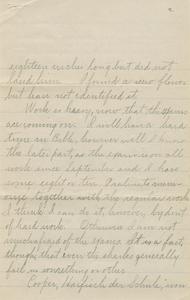 eighteen inches long but did not
land him. I found a new flower
but have not identified it.
Work is heavy, now that the exams
are coming on. I will have a hard
time in Bible, however well I know
the later part, as the exam is on all
work since September and I have
some eight or ten Pauline to
together with the regular work
I think I can do it, however, by dint
of hard work. Otherwise I am not
much afraid of the exams. It is a fact
though, that even the sharks generally
fall in something or other.
Cooper, der Schule, won